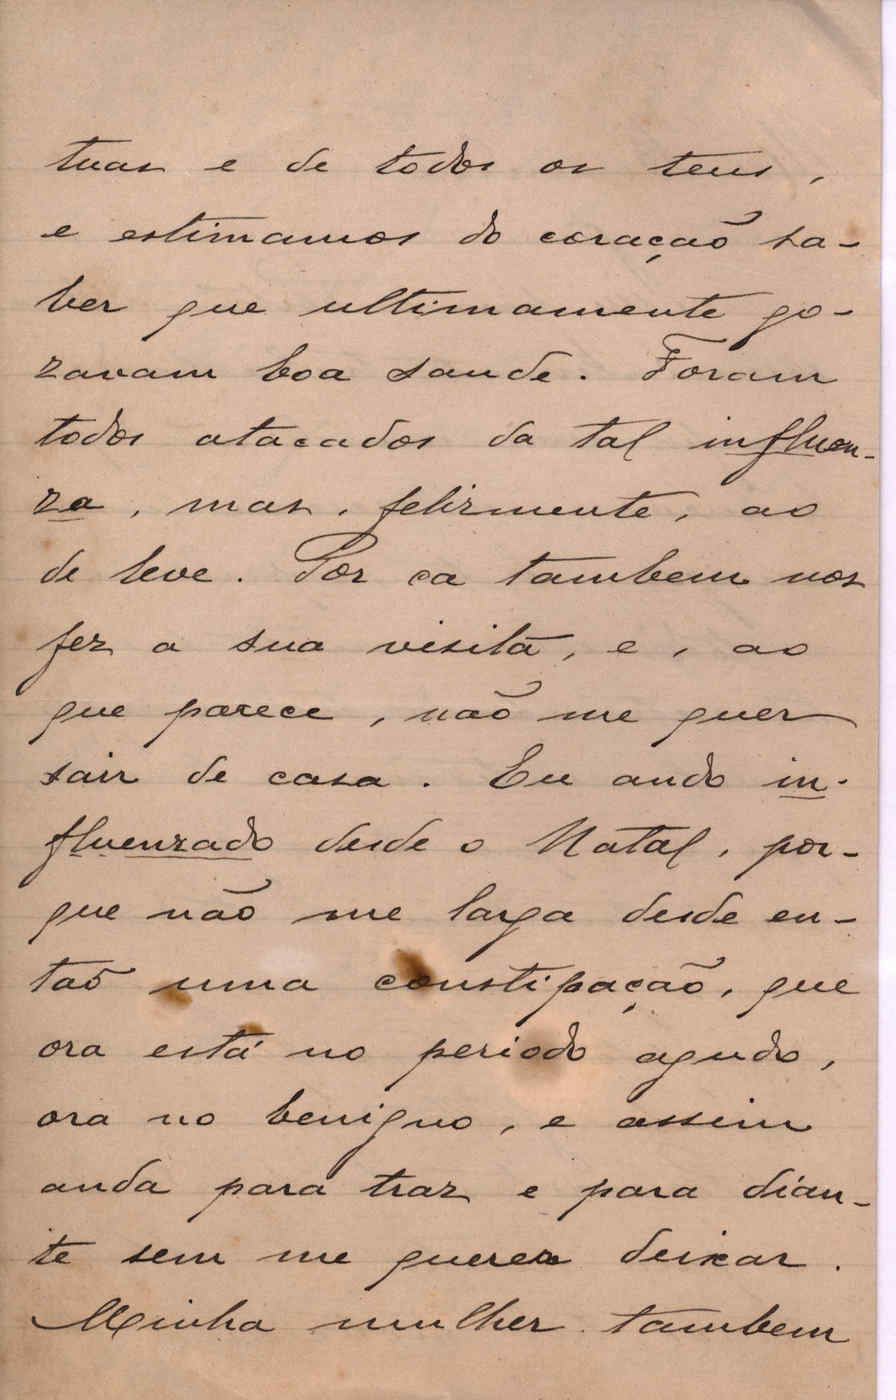 tuas e de todos os teus,
e estimamos do coração sa-
ber que ultimamente go-
zavam boa saude. Foram
todos atacados da tal influen-
za, mas, felizmente, ao
de leve. Por ca tambem nos
fez a sua visita, e, ao
que parece, não me quer
sair de casa. Eu ando in-
fluenzado desde o Natal, por-
que não me larga desde en-
tão uma constipação, que
ora está no periodo agudo,
ora no benigno, e assim
anda para traz e para dian-
te sem me querer deixar.
Minha mulher tambem